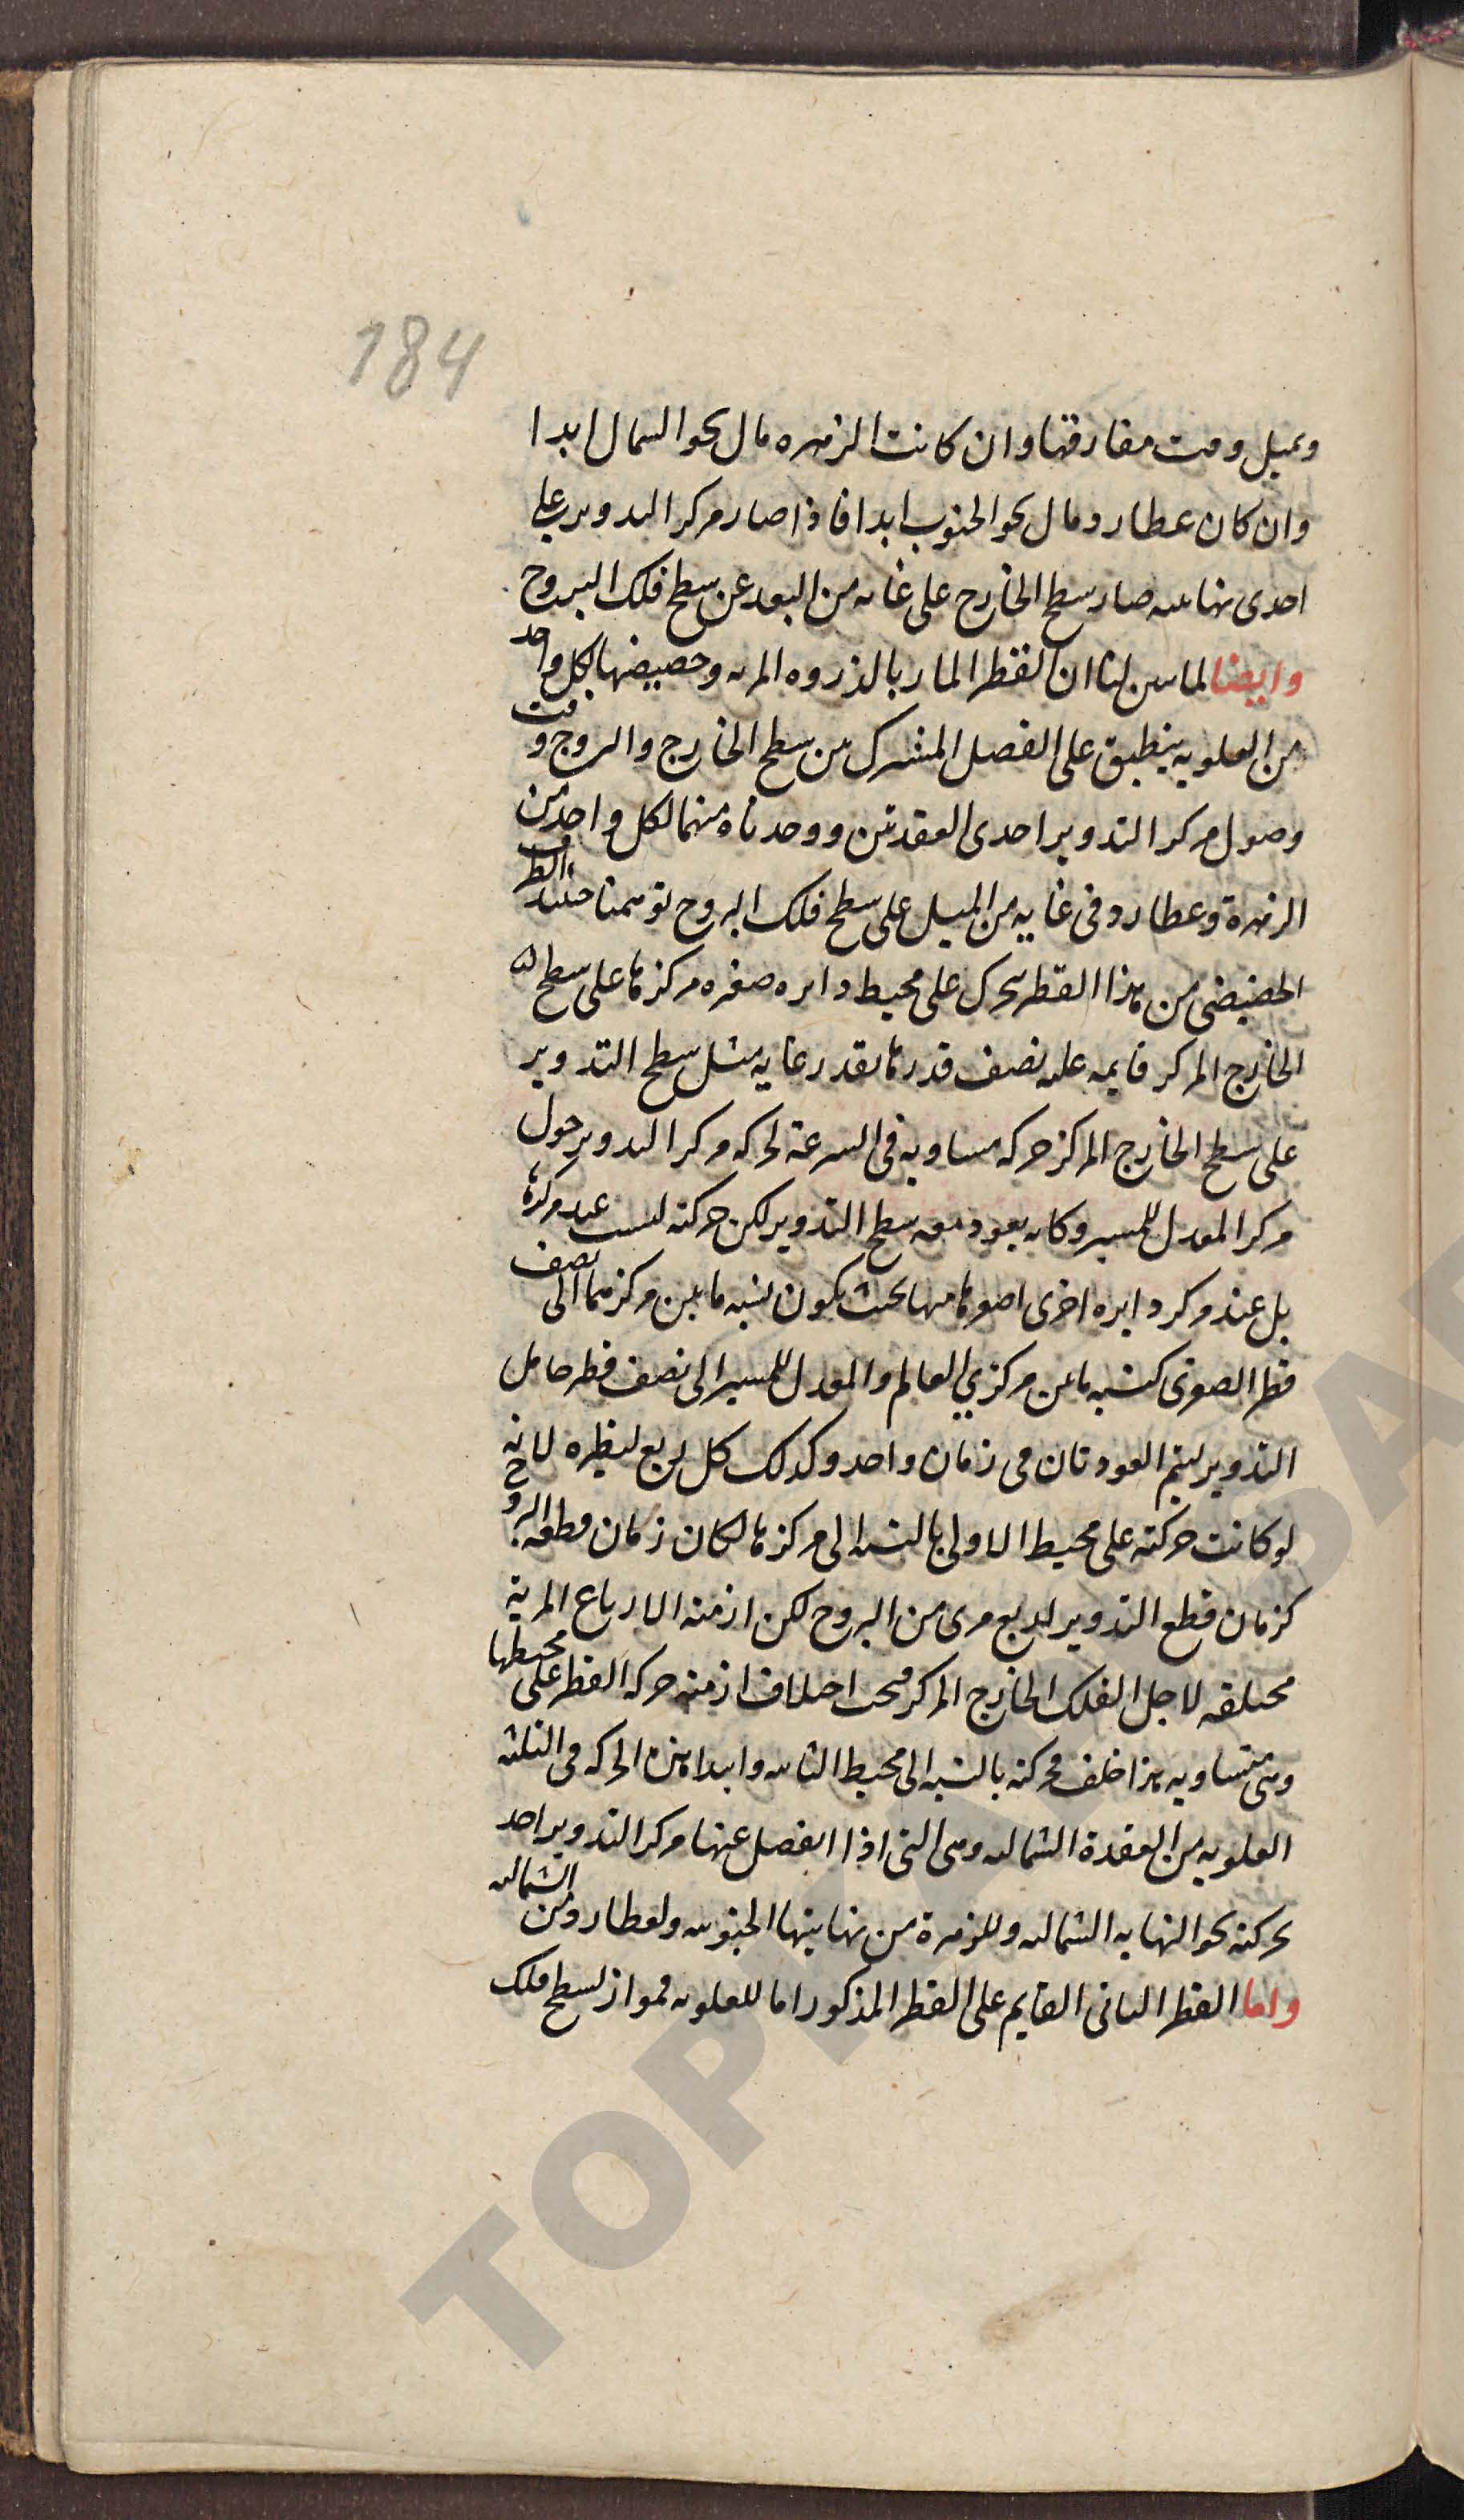 184
ويميل وقت مفارقتها وان كانت الزهره مال نحو الشمال ابدا
وان كان عطارد مال نحو الجنوب ابدا فاذا صار مركز التدوير على
احدى نهايتيه صار سطح الخارج على غايه من البعد عن سطح فلك البروج
وايضا لما تبين لنا ان القطر المار بالذروه المريه وحضيضها لكل واحد
من العلويه ينطبق على الفصل المشترك بين سطح الخارج والبروج وقت
وصول مركز التدوير احدى العقدتين ووجدناه منهما لكل واحد من
الزهرة وعطارد فى غايه من الميل على سطح فلك البروج توهمنا حينئذ الطرف
الحضيضى من هذا القطر يتحرك على محيط دايره صغيره مركزها على سطح
الخارج المركز قايمه عليه نصف قدرها بقدر غايه ميل سطح التدوير
على سطح الخارج المركز حركه مساويه فى السرعة لحركه مركز التدوير حول
مركز المعدل للمسير وكانه يعود معه سطح التدوير لكن حركته ليست عند مركزها
بل عند مركز دايره اخرى اصغر منها بحيث يكون نسبه ما بين مركزهما الى نصف
قطر الصغرى كنسبه ما بين مركزي العالم والمعدل للمسير الى نصف قطر حامل
التدوير ليتم العودتان فى زمان واحد وكذلك كل ربع لنظيره لانه
لو كانت حركته على محيط الاولى بالنسبه الى مركزها لكان زمان قطعه الربع
كزمان قطع التدوير لربع مرى من البروج لكن ازمنه الارباع المرية
مختلفه لاجل الفلك الخارج المركز فيجب اختلاف ازمنه حركه القطر على محيطها
وهى متساويه هذا خلف فحركته بالنسبه الى محيط الثانيه وابتدا هذه الحركه فى الثلثه
العلويه من العقدة الشماليه وهى التى اذا انفصل عنها مركز التدوير اخذ
بحركته نحو النهايه الشماليه وللزهرة من نهايتها الجنوبيه ولعطارد من الشماليه
واما القطر الثانى القايم على القطر المذكور اما للعلويه فمواز لسطح فلك
TOPKAPI SARAYI